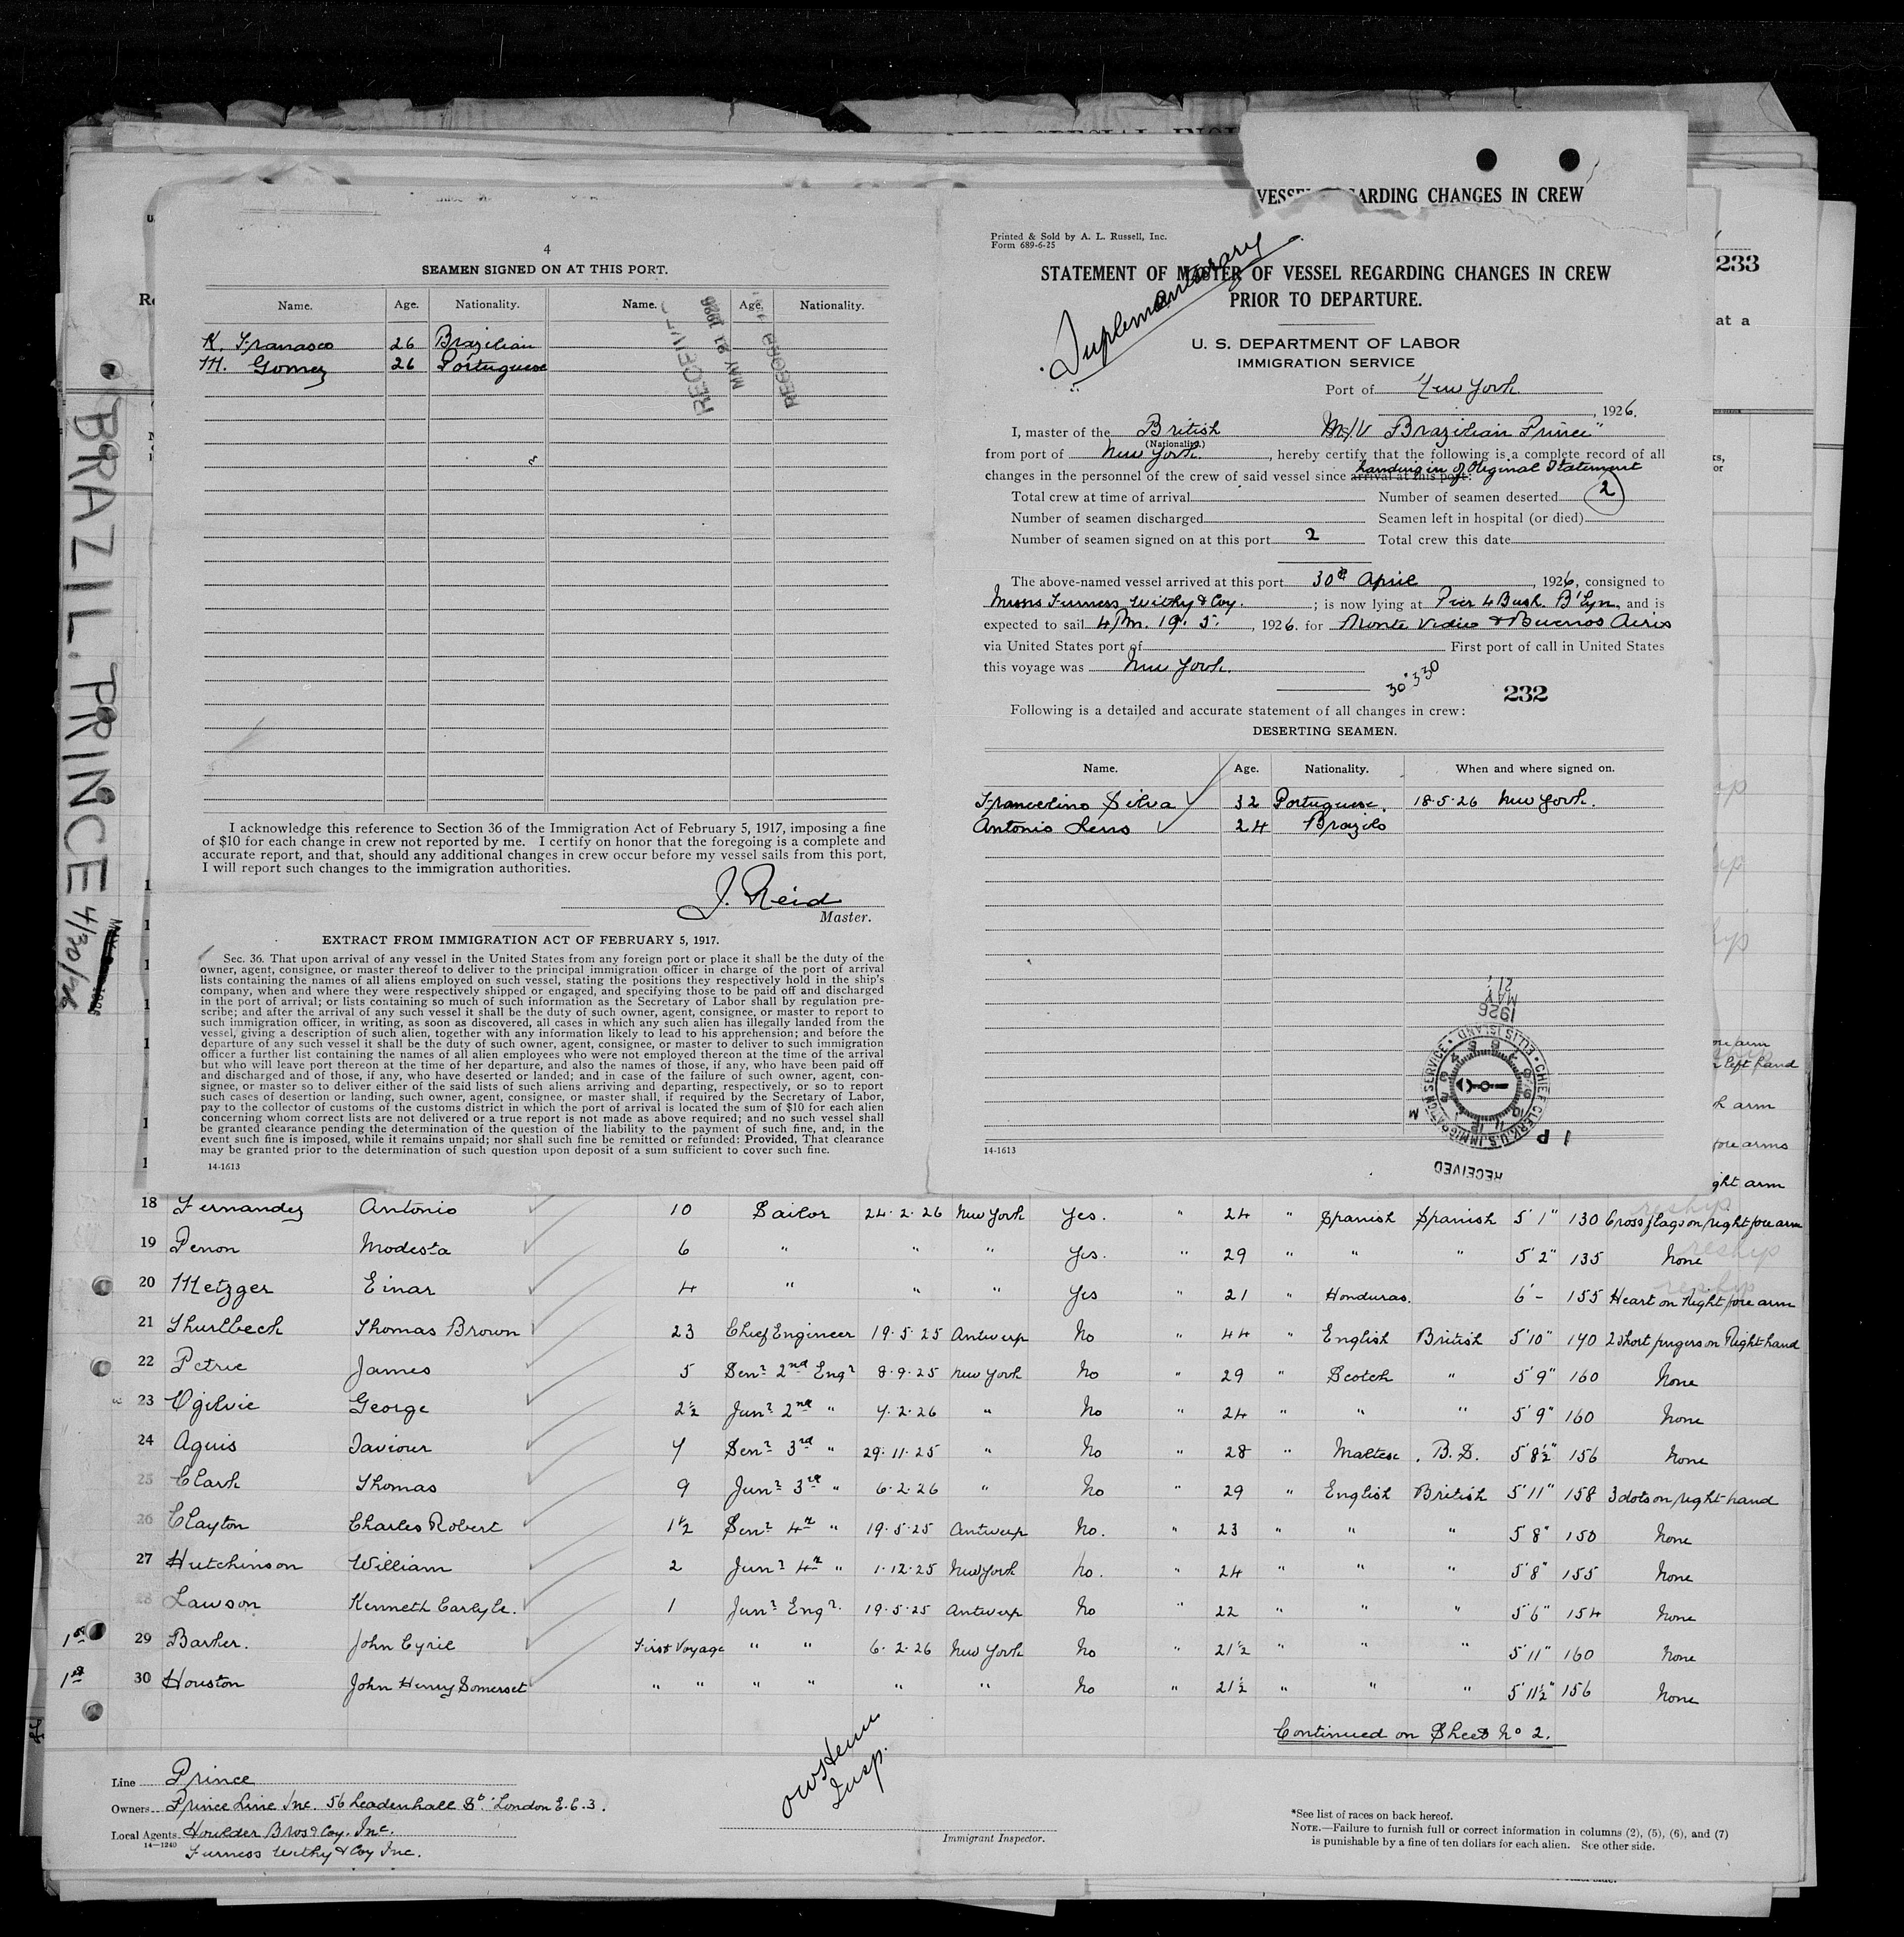 VESSEL REGARDING CHANGES IN CREW
233
at a
BRAZIL. PRINCE 4/30/26
4
SEAMEN SIGNED ON AT THIS PORT.
Name. Age. Nationality. Name. Age. Nationality.
K. Franasco 26 Brazilian
M. Gomez 26 Portuguese
RECEIVED
MAY 21 1926
I acknowledge this reference to Section 36 of the Immigration Act of February 5, 1917, imposing a fine
of $10 for each change in crew not reported by me. I certify on honor that the foregoing is a complete and
accurate report, and that, should any additional changes in crew occur before my vessel sails from this port,
I will report such changes to the immigration authorities.
J. Reid
Master.
EXTRACT FROM IMMIGRATION ACT OF FEBRUARY 5, 1917.
Sec. 36. That upon arrival of any vessel in the United States from any foreign port or place it shall be the duty of the
owner, agent, consignee, or master thereof to deliver to the principal immigration officer in charge of the port of arrival
lists containing the names of all aliens employed on such vessel, stating the positions they respectively hold in the ship's
company, when and where they were respectively shipped or engaged, and specifying those to be paid off and discharged
in the port of arrival; or lists containing so much of such information as the Secretary of Labor shall by regulation pre-
scribe; and after the arrival of any such vessel it shall be the duty of such owner, agent, consignee, or master to report to
such immigration officer, in writing, as soon as discovered, all cases in which any such alien has illegally landed from the
vessel, giving a description of such alien, together with any information likely to lead to his apprehension; and before the
departure of any such vessel it shall be the duty of such owner, agent, consignee, or master to deliver to such immigration
officer a further list containing the names of all alien employees who were not employed thereon at the time of the arrival
but who will leave port thereon at the time of her departure, and also the names of those, if any, who have been paid off
and discharged and of those, if any, who have deserted or landed; and in case of the failure of such owner, agent, con-
signee, or master so to deliver either of the said lists of such aliens arriving and departing, respectively, or so to report
such cases of desertion or landing, such owner, agent, consignee, or master shall, if required by the Secretary of Labor,
pay to the collector of customs of the customs district in which the port of arrival is located the sum of $10 for each alien
concerning whom correct lists are not delivered or a true report is not made as above required; and no such vessel shall
be granted clearance pending the determination of the question of the liability to the payment of such fine, and, in the
event such fine is imposed, while it remains unpaid; nor shall such fine be remitted or refunded: Provided, That clearance
may be granted prior to the determination of such question upon deposit of a sum sufficient to cover such fine.
14-1613
Printed & Sold by A. L. Russell, Inc.
Form 689-6-25
STATEMENT OF MASTER OF VESSEL REGARDING CHANGES IN CREW
PRIOR TO DEPARTURE.
Suplemantarary
U. S. DEPARTMENT OF LABOR
IMMIGRATION SERVICE
Port of New York
, 1926.
I, master of the British M/V "Brazilian Prince"
(Nationality.)
from port of New York, hereby certify that the following is a complete record of all
handing in of Original Statement
changes in the personnel of the crew of said vessel since arrival at this port:
Total crew at time of arrival Number of seamen deserted 2
Number of seamen discharged Seamen left in hospital (or died)
Number of seamen signed on at this port 2 Total crew this date
The above-named vessel arrived at this port 30th April, 1926, consigned to
Messrs Furness Withy & Coy. ; is now lying at Pier 4 Bush. B'lyn, and is
expected to sail 4 PM. 19. 5. , 1926. for Monte Video & Buenos Aires
via United States port of First port of call in United States
this voyage was New York.
30.330
232
Following is a detailed and accurate statement of all changes in crew:
DESERTING SEAMEN.
Name. Age. Nationality. When and where signed on.
Francelino Silva 32 Portuguese. 18.5.26 New York.
Antonio 24
1926
MAY
21
CHIEF CLERK U.S. IMMIGRATION SERVICE ELLIS ISLAND
RECEIVED
14-1613
18 Fernandez Antonio 10 Sailor 24.2.26 New York Yes. " 24 " Spanish Spanish 5' 1" 130 Cross flags on right fore arm
19 Penon Modesta 6 " " " Yes. " 29 " " " 5' 2" 135 None
20 Metzger Einar 4 " " " Yes " 21 " Honduras. 6' - 155 Heart on Right fore arm
21 Thurlbeck Thomas Brown 23 Chief Engineer 19.5.25 Antwerp No " 44 " English British 5' 10" 170 2 short fingers on Right hand
22 Petrie James 5 Senr 2nd Engr 8.9.25 New York No " 29 " Scotch " 5' 9" 160 None
23 Ogilvie George 2½ Junr 2nd " 7.2.26 " No " 24 " " " 5' 9" 160 None
24 Aguis Saviour 7 Senr 3rd " 29.11.25 " No " 28 " Maltese . B.S. 5' 8½" 156 None
25 Clark Thomas 9 Junr 3rd " 6.2.26 " No " 29 " English British 5' 11" 158 3 dots on right hand
26 Clayton Charles Robert 1½ Senr 4th " 19.5.25 Antwerp No. " 23 " " " 5' 8" 150 None
27 Hutchinson William 2 Junr 4th " 1.12.25 New York No. " 24 " " " 5' 8" 155 None
28 Lawson Kenneth Carlyle. 1 Junr Engr. 19.5.25 Antwerp No " 22 " " " 5' 6" 154 None
1st 29 Barker. John Cyril First Voyage " " 6.2.26 New York No " 21½ " " " 5' 11" 160 None
1st 30 Houston John Henry Somerset " " " " " " No " 21½ " " " 5' 11½" 156 None
Continued on Sheet No 2.
Line Prince
Owners Prince Line Inc. 56 Leadenhall St. London E.C.3.
Local Agents Houlder Bros & Coy. Inc.
14-1240
Furness Withy & Coy Inc.
Insp.
Immigrant Inspector.
*See list of races on back hereof.
NOTE.—Failure to furnish full or correct information in columns (2), (5), (6), and (7)
is punishable by a fine of ten dollars for each alien. See other side.